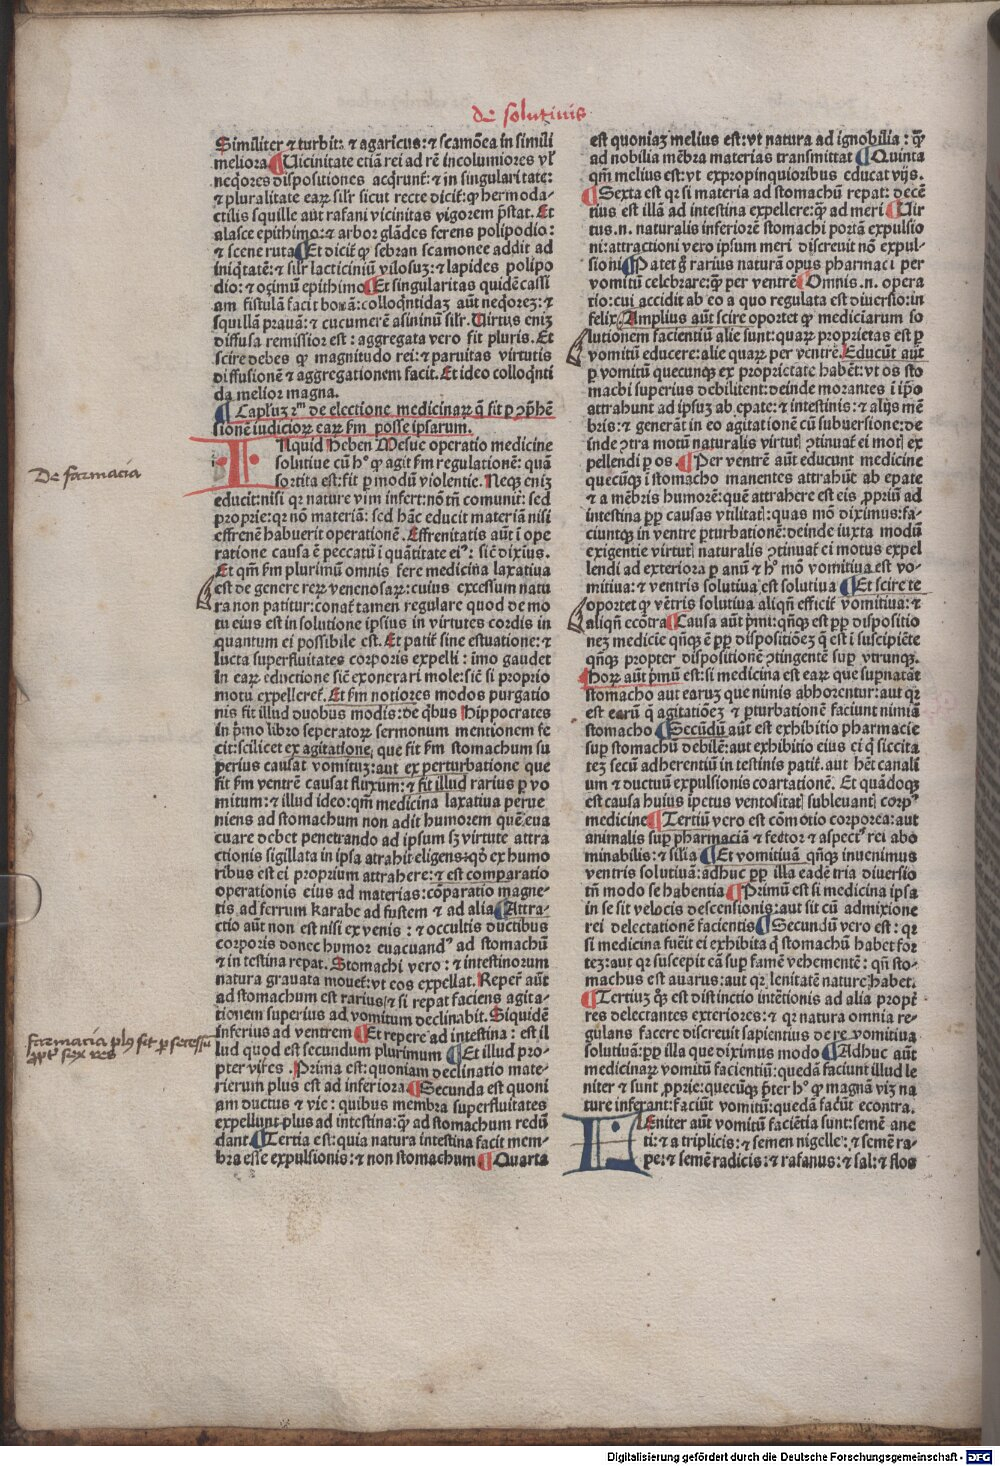 de solutiuis
Similiter ⁊ turbit: ⁊ agaricus: ⁊ scamōea in simili
meliora ¶ Uicinitate etiā rei ad rē incolumiores vl'
neq̄ores dispositiones acq̄runt: ⁊ in singularitate:
⁊ pluralitate eaꝝ silr sicut recte dicit: ꝙ hermoda-
ctilis squille aut rafani vicinitas vigorem p̄stat. Et
alasce epithimo: ⁊ arbor glādes ferens polipodio:
⁊ scene ruta ¶ Et dicit ꝙ sebran scamonee addit ad
iniq̄tatē: ⁊ silr lacticiniū vilosuz: ⁊ lapides polipo
dio: ⁊ ozimū epithimo ¶ Et singularitas quidē cassi
am fistulā facit bonā: colloq̄ntidaz aūt neq̄orez: ⁊
squillā prauā: ⁊ cucumerē asininū silr. Uirtus eniz
diffusa remissior est: aggregata vero fit pluris. Et
scire debes ꝙ magnitudo rei: ⁊ paruitas virtutis
diffusionē ⁊ aggregationem facit. Et ideo colloq̄nti
da melior magna.
¶ Capl'uz 2ᵐ de electione medicinaꝝ q̄ fit ꝑ ꝯp̄hē
sionē iudicioꝝ eaꝝ ẜm posse ipsarum.
Iᴎquid Heben Mesue operatio medicine
solutiue cū hᵒ ꝙ agit ẜm regulationē: quā
sortita est: fit ꝑ modū violentie. Neqꝫ eniz
educit: nisi qꝛ nature vim infert: nō tn̄ comunit: sed
proprie: qꝛ nō materiā: sed hāc educit materiā nisi
effrenē habuerit operationē. Effrenitatis aūt ī ope
ratione causa ē peccatū ī quātitate eiꝰ: sic̄ dixius.
Et qm̄ ẜm plurimū omnis fere medicina laxatiua
est de genere reꝝ venenosaꝝ: cuius excessum natu
ra non patitur: conat̄ tamen regulare quod de mo
tu eius est in solutione ipsius in virtutes cordis in
quantum ei possibile est. Et patit̄ sine estuatione: ⁊
lucta superfluitates corporis expelli: imo gaudet
in eaꝝ eductione sic̄ exonerari mole: sic̄ si proprio
motu expelleret̄. Et ẜm notiores modos purgatio
nis fit illud duobus modis: de q̄bus Hippocrates
in p̄mo libro seperatoꝝ sermonum mentionem fe
cit: scilicet ex agitatione, que fit ẜm stomachum su
perius causat vomituz: aut ex perturbatione que
fit ẜm ventrē causat fluxum: ⁊ fit illud rarius ꝑ vo
mitum: ⁊ illud ideo: qm̄ medicina laxatiua perue
niens ad stomachum non adit humorem quē eua
cuare debet penetrando ad ipsum sꝫ virtute attra
ctionis sigillata in ipsa atrahit eligens: qd̓ ex humo
ribus est ei proprium attrahere: ⁊ est comparatio
operationis eius ad materias: cōparatio magne-
tis ad ferrum karabe ad fustem ⁊ ad alia ¶ Attra-
ctio aūt non est nisi ex venis: ⁊ occultis ductibus
corporis donec humor euacuandꝰ ad stomachū
⁊ in testina repat. Stomachi vero: ⁊ intestinorum
natura grauata mouet̄: vt eos expellat. Reper̄ aūt
ad stomachum est rarius: ⁊ si repat faciens agita-
tionem superius ad vomitum declinabit. Siquidē
inferius ad ventrem ¶ Et repere ad intestina: est il
lud quod est secundum plurimum ¶ Et illud pro-
pter vires. Prima est: quoniam declinatio mate-
rierum plus est ad inferiora ¶ Secunda est quoni
am ductus ⁊ vie: quibus membra superfluitates
expellunt plus ad intestina: ꝙ̄ ad stomachum redū
dant ¶ Tertia est: quia natura intestina facit mem-
bra esse expulsionis: ⁊ non stomachum ¶ Quarta
est quoniaz melius est: vt natura ad ignobilia: ꝙ̄
ad nobilia mēbra materias transmittat ¶ Quinta
qm̄ melius est: vt expropinquioribus educat vijs.
¶ Sexta est qꝛ si materia ad stomachū repat: decē
tius est illā ad intestina expellere: ꝙ̄ ad meri ¶ Uir
tus .n. naturalis inferiorē stomachi portā expulsio
ni: attractioni vero ipsum meri discreuit nō expul-
sioni ¶ Patet ḡ rarius naturā opus pharmaci per
vomitū celebrare: ꝙ̄ per ventrē ¶ Omnis .n. opera
tio: cui accidit ab eo a quo regulata est diuersio: in
felix. Amplius aūt scire oportet ꝙ mediciarum so
lutionem facientiū alie sunt: quaꝝ proprietas est ꝑ
vomitū educere: alie quaꝝ per ventrē. Educūt aūt
ꝑ vomitū quecunqꝫ ex proprietate habēt: vt os sto
machi superius debilitent: deinde morantes ī ip̄o
attrahunt ad ipsuz ab epate: ⁊ intestinis: ⁊ alijs mē
bris: ⁊ generāt in eo agitationē cū subuersione: de
inde ꝯtra motū naturalis virtut̄ ꝯtinuat̄ ei mot̄ ex
pellendi ꝑ os. ¶ Per ventrē aūt educunt medicine
quecūqꝫ ī stomacho manentes attrahūt ab epate
⁊ a mēbris humorē: quē attrahere est eis ꝓpriū ad
intestina ꝓpꝫ causas vtilitat̄: quas mō diximus: fa-
ciuntqꝫ in ventre ꝑturbationē: deinde iuxta modū
exigentie virtut̄ naturalis ꝯtinuat̄ ei motus expel
lendi ad exteriora ꝑ anū ⁊ hᵒ mō vomitiua est vo-
mitiua: ⁊ ventris solutiua est solutiua ¶ Et scire te
oportet ꝙ vētris solutiua aliqn̄ efficit̄ vomitiua: ⁊
aliqn̄ ecōtra ¶ Causa aūt p̄mi: qn̄qꝫ est ꝓpꝫ dispositio
nez medicie qn̄qꝫ ē ꝓpꝫ dispositiōez q̄ est ī suscipiēte
qn̄qꝫ propter dispositionē ꝯtingentē suꝑ vtrunqꝫ.
Hoꝝ aūt p̄mū est: si medicina est eaꝝ que supnatāt
stomacho aut earuz que nimis abhorrentur: aut qꝛ
est earū q̄ agitatiōez ⁊ ꝑturbationē faciunt nimiā
stomacho ¶ Secūdū aūt est exhibitio pharmacie
suꝑ stomachū debilē: aut exhibitio eius ei q̄ siccita
tez secū adherentiū in testinis patit̄. aut hēt canali
um ⁊ ductuū expulsionis coartationē. Et quādoqꝫ
est causa huius īpetus ventositat̄ subleuant̄ corpꝰ
medicine ¶ Tertiū vero est cōmotio corporea: aut
animalis suꝑ pharmaciā ⁊ fetor ⁊ aspectꝰ rei abo
minabilis: ⁊ silia ¶ Et vomitiuā qn̄qꝫ inuenimus
ventris solutiuā: adhuc ꝓpꝫ illa eadē tria diuersio
tn̄ modo se habentia ¶ Primū est si medicina ipsa
in se sit velocis descensionis: aut sit cū admixione
rei delectationē facientis ¶ Secundū vero est: qꝛ
si medicina fuēit ei exhibita q̄ stomachū habet for
tez: aut qꝛ suscepit eā suꝑ famē vehementē: qn̄ sto-
machus est auarus: aut qꝛ lenitatē nature habet.
¶ Tertiuz ꝙ̄ est distinctio intētionis ad alia propt̄
res delectantes exteriores: ⁊ qꝛ natura omnia re-
gulans facere discreuit sapientius de re vomitiua
solutiuā: ꝓpꝫ illa que diximus modo ¶ Adhuc aūt
medicinaꝝ vomitū facientiū: quedā faciunt illud le
niter ⁊ sunt ꝓprie: quecūqꝫ p̄ter hᵒ ꝙ magnā viz na
ture inferant: faciūt vomitū: quedā faciūt econtra.
LEniter aūt vomitū faciētia sunt: semē ane
ti: ⁊ a triplicis: ⁊ semen nigelle: ⁊ semē ra-
pe: ⁊ semē radicis: ⁊ rafanus: ⁊ sal: ⁊ flos
De farmacia
farmacia plꝰ fit per secessū
ꝓpt̓ sex res
Digitalisierung gefördert durch die Deutsche Forschungsgemeinschaft - DFG